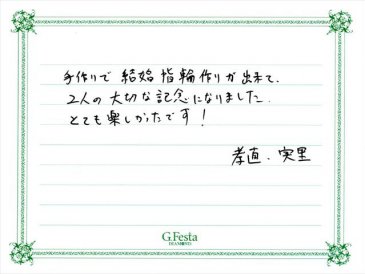 手作りで結婚指輪作りが出来て、
2人の大切な記念になりました。
とても楽しかったです!
孝直、実里
G.Festa
DIAMOND